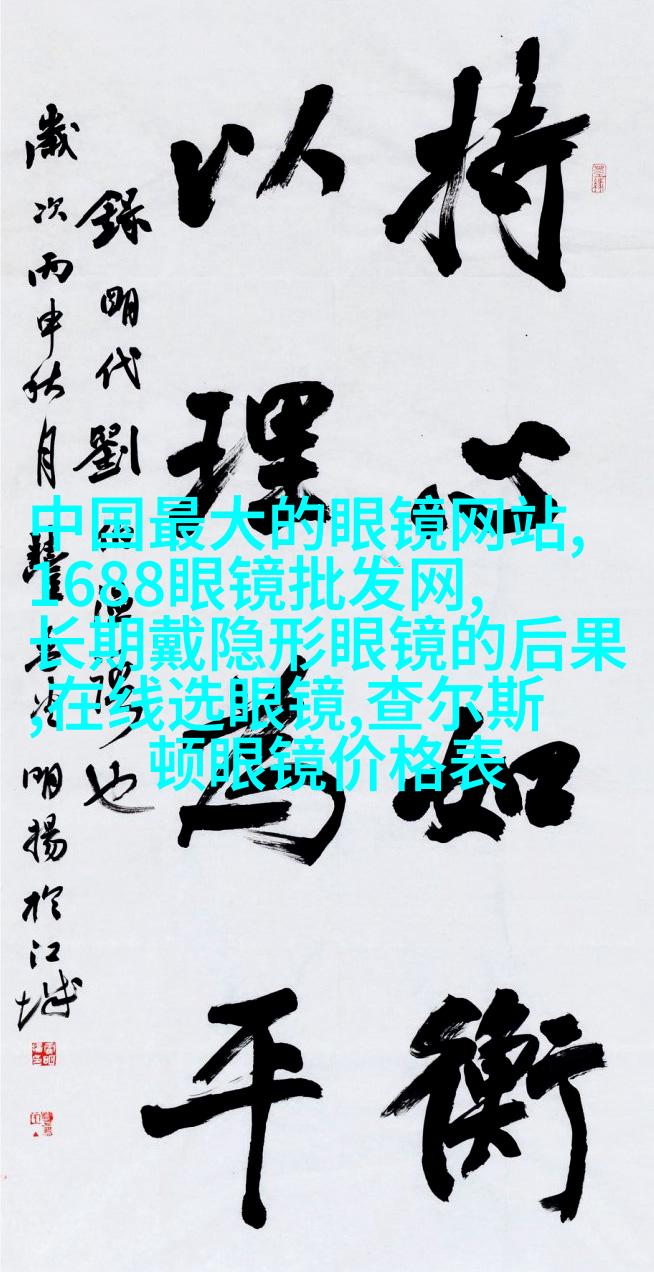 持心如衡
以理为平
錄明代劉
也
歲次丙申秋月
明揚於江城
中国最大的眼镜网站,
1688眼镜批发网,
长期戴隐形眼镜的后果
,在线选眼镜,查尔斯
顿眼镜价格表